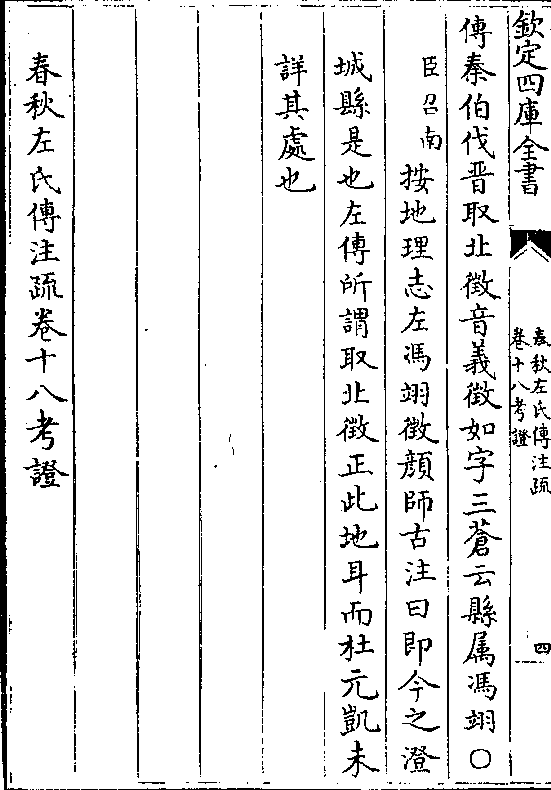 欽定四庫全書
春秋左氏傳注疏
卷十八考證
四
傳秦伯伐晋取北徴音義徴如字三蒼云縣属馮翊〇
臣召南按地理志左馮翊徴顔師古注曰即今之澄
城縣是也左傳所謂取北徴正此地耳而杜元凱未
詳其處也
春秋左氏傳注疏卷十八考證